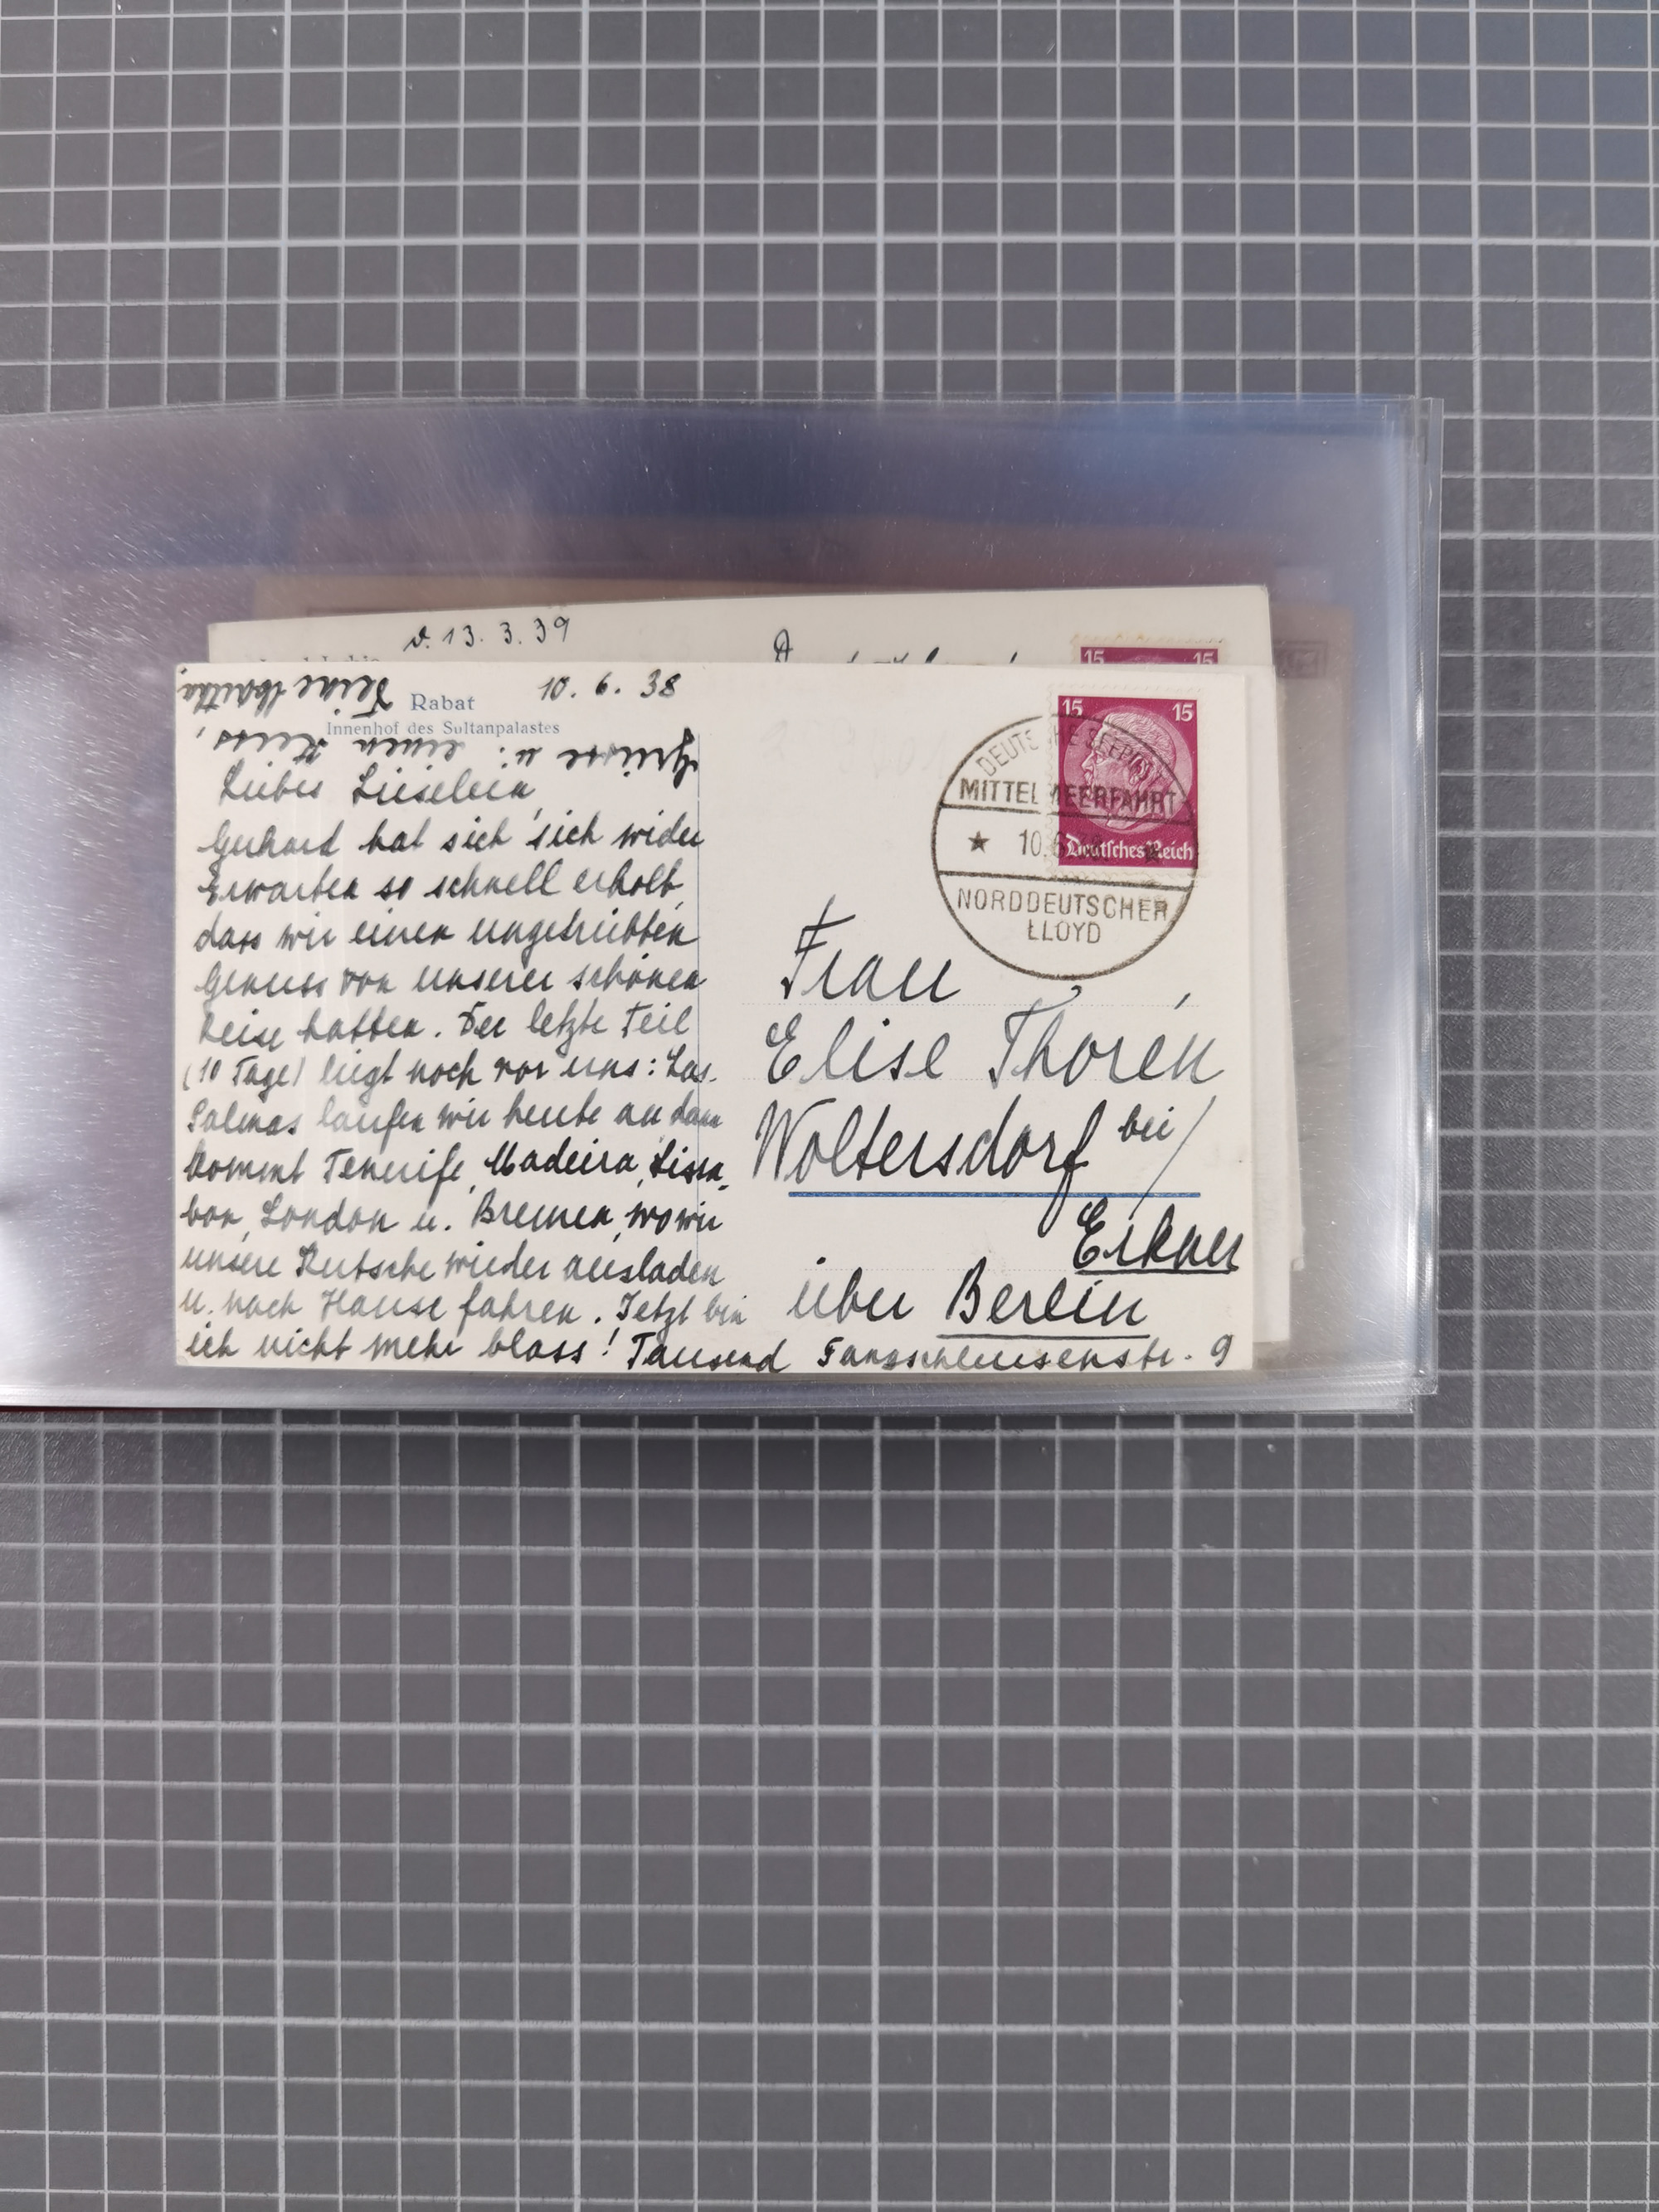 v. 13. 3. 39
15 15
Rabat
Innenhof des Sultanpalastes
10. 6. 38
Liebes Lieselein,
Gerhard hat sich sich wider
Erwarten so schnell erholt,
dass wir einen ungetrübten
Genuss von unserer schönen
Reise hatten. Der letzte Teil
(10 Tage) liegt noch vor uns: Las-
Palmas laufen wir heute an dann
kommt Tenerife, Madeira, Lissa-
bon, London u. Bremen, wo wir
unsere Kutsche wieder ausladen
u. nach Hause fahren. Jetzt bin
ich nicht mehr blass! Tausend
Grüsse u. einen Kuss,
Deine
15 15
Deutsches Reich
DEUTSCHE SEEPOST
MITTELMEERFAHRT
10.6.38
NORDDEUTSCHER
LLOYD
Frau
Elise Thorén
Woltersdorf bei/
Erkner
über Berlin
Fangschleusenstr. 9